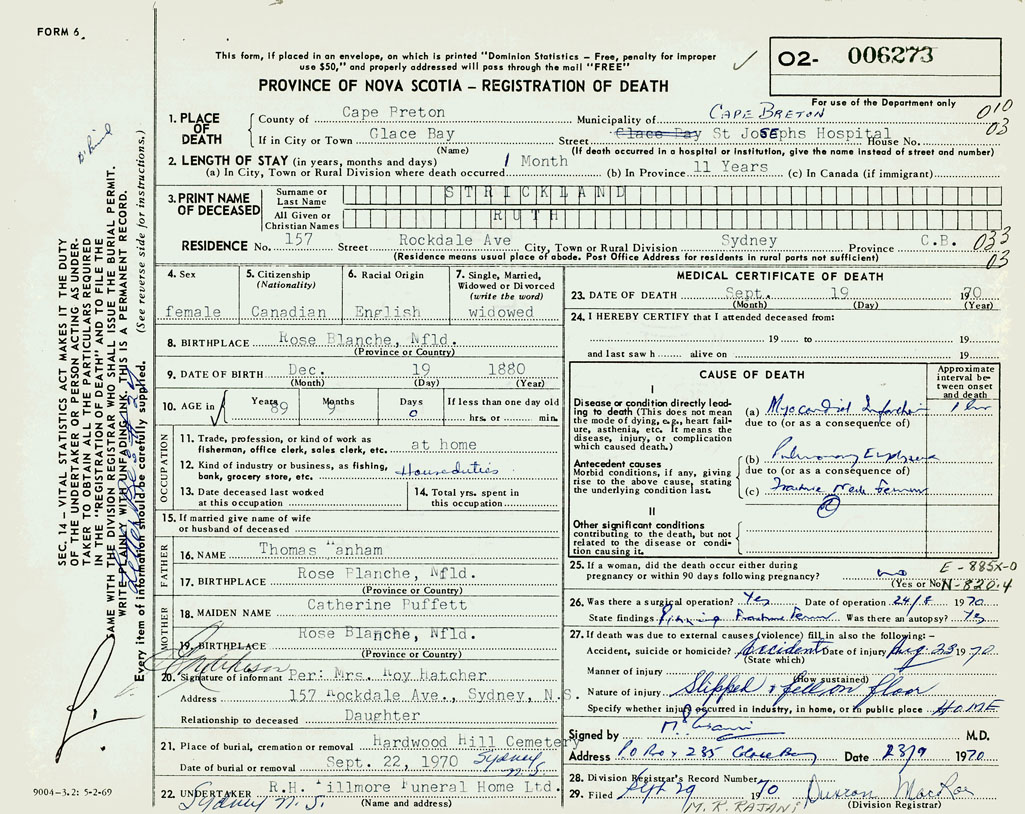 FORM 6
This form, if placed in an envelope, on which is printed "Dominion Statistics – Free, penalty for improper
use $50," and properly addressed will pass through the mail "FREE"
02- 006273
PROVINCE OF NOVA SCOTIA – REGISTRATION OF DEATH
For use of the Department only
1. PLACE OF DEATH
County of Cape Breton Municipality of CAPE BRETON 010
If in City or Town Glace Bay Street Glace Bay St Josephs Hospital House No. 03
(Name) (If death occurred in a hospital or institution, give the name instead of street and number)
2. LENGTH OF STAY (in years, months and days) 1 Month
(a) In City, Town or Rural Division where death occurred (b) In Province 11 Years (c) In Canada (if immigrant)
3. PRINT NAME OF DECEASED
Surname or Last Name STRICKLAND
All Given or Christian Names RUTH
RESIDENCE No. 157 Street Rockdale Ave City, Town or Rural Division Sydney Province C.B. 033
(Residence means usual place of abode. Post Office Address for residents in rural parts not sufficient) 03
4. Sex female
5. Citizenship (Nationality) Canadian
6. Racial Origin English
7. Single, Married, Widowed or Divorced (write the word) widowed
8. BIRTHPLACE Rose Blanche, Nfld.
(Province or Country)
9. DATE OF BIRTH Dec. 19 1880
(Month) (Day) (Year)
10. AGE in Years 89 Months 9 Days 0 If less than one day old
hrs. or min.
OCCUPATION
11. Trade, profession, or kind of work as fisherman, office clerk, sales clerk, etc. at home
12. Kind of industry or business, as fishing, bank, grocery store, etc. Houseduties
13. Date deceased last worked at this occupation
14. Total yrs. spent in this occupation
15. If married give name of wife or husband of deceased
FATHER
16. NAME Thomas Hanham
17. BIRTHPLACE Rose Blanche, Nfld.
(Province or Country)
MOTHER
18. MAIDEN NAME Catherine Buffett
19. BIRTHPLACE Rose Blanche, Nfld.
(Province or Country)
20. Signature of informant Per: Mrs. Roy Hatcher
Address 157 Rockdale Ave., Sydney, N.S.
Relationship to deceased Daughter
21. Place of burial, cremation or removal Hardwood Hill Cemetery
Date of burial or removal Sept. 22, 1970 Sydney N.S.
22. UNDERTAKER R.H. Fillmore Funeral Home Ltd.
Sydney N.S. (Name and address)
MEDICAL CERTIFICATE OF DEATH
23. DATE OF DEATH Sept. 19 1970
(Month) (Day) (Year)
24. I HEREBY CERTIFY that I attended deceased from:
19 to 19
and last saw h alive on 19
CAUSE OF DEATH
Approximate interval between onset and death
I
Disease or condition directly leading to death (This does not mean the mode of dying, e.g., heart failure, asthenia, etc. It means the disease, injury, or complication which caused death.)
(a) Myocardial Infarction 1 hr
due to (or as a consequence of)
Antecedent causes
Morbid conditions, if any, giving rise to the above cause, stating the underlying condition last.
(b) Pulmonary Emphysema
due to (or as a consequence of)
(c) Fracture Neck Femur
II
Other significant conditions
contributing to the death, but not related to the disease or condition causing it.
25. If a woman, did the death occur either during pregnancy or within 90 days following pregnancy? no
(Yes or No)
E-885X-0
N-820.4
26. Was there a surgical operation? Yes Date of operation 24/8 1970
State findings Pinning Fracture Femur Was there an autopsy? Yes
27. If death was due to external causes (violence) fill in also the following:–
Accident, suicide or homicide? Accident Date of injury Aug. 23 1970
(State which)
Manner of injury
(How sustained)
Nature of injury Slipped & fell on floor
Specify whether injury occurred in industry, in home, or in public place HOME
Signed by M.D.
Address PO Box 285 Glace Bay Date 23/9 1970
28. Division Registrar's Record Number
29. Filed Sept 29 1970
M. R. RAJANI (Division Registrar)
9004-3.2: 5-2-69
SEC. 14 – VITAL STATISTICS ACT MAKES IT THE DUTY
OF THE UNDERTAKER OR PERSON ACTING AS UNDER-
TAKER TO OBTAIN ALL THE PARTICULARS REQUIRED
IN THE "REGISTRATION OF DEATH" AND TO FILE THE
SAME WITH THE DIVISION REGISTRAR WHO SHALL ISSUE THE BURIAL PERMIT.
WRITE PLAINLY WITH UNFADING INK. THIS IS A PERMANENT RECORD.
Every item of information should be carefully supplied. (See reverse side for instructions.)